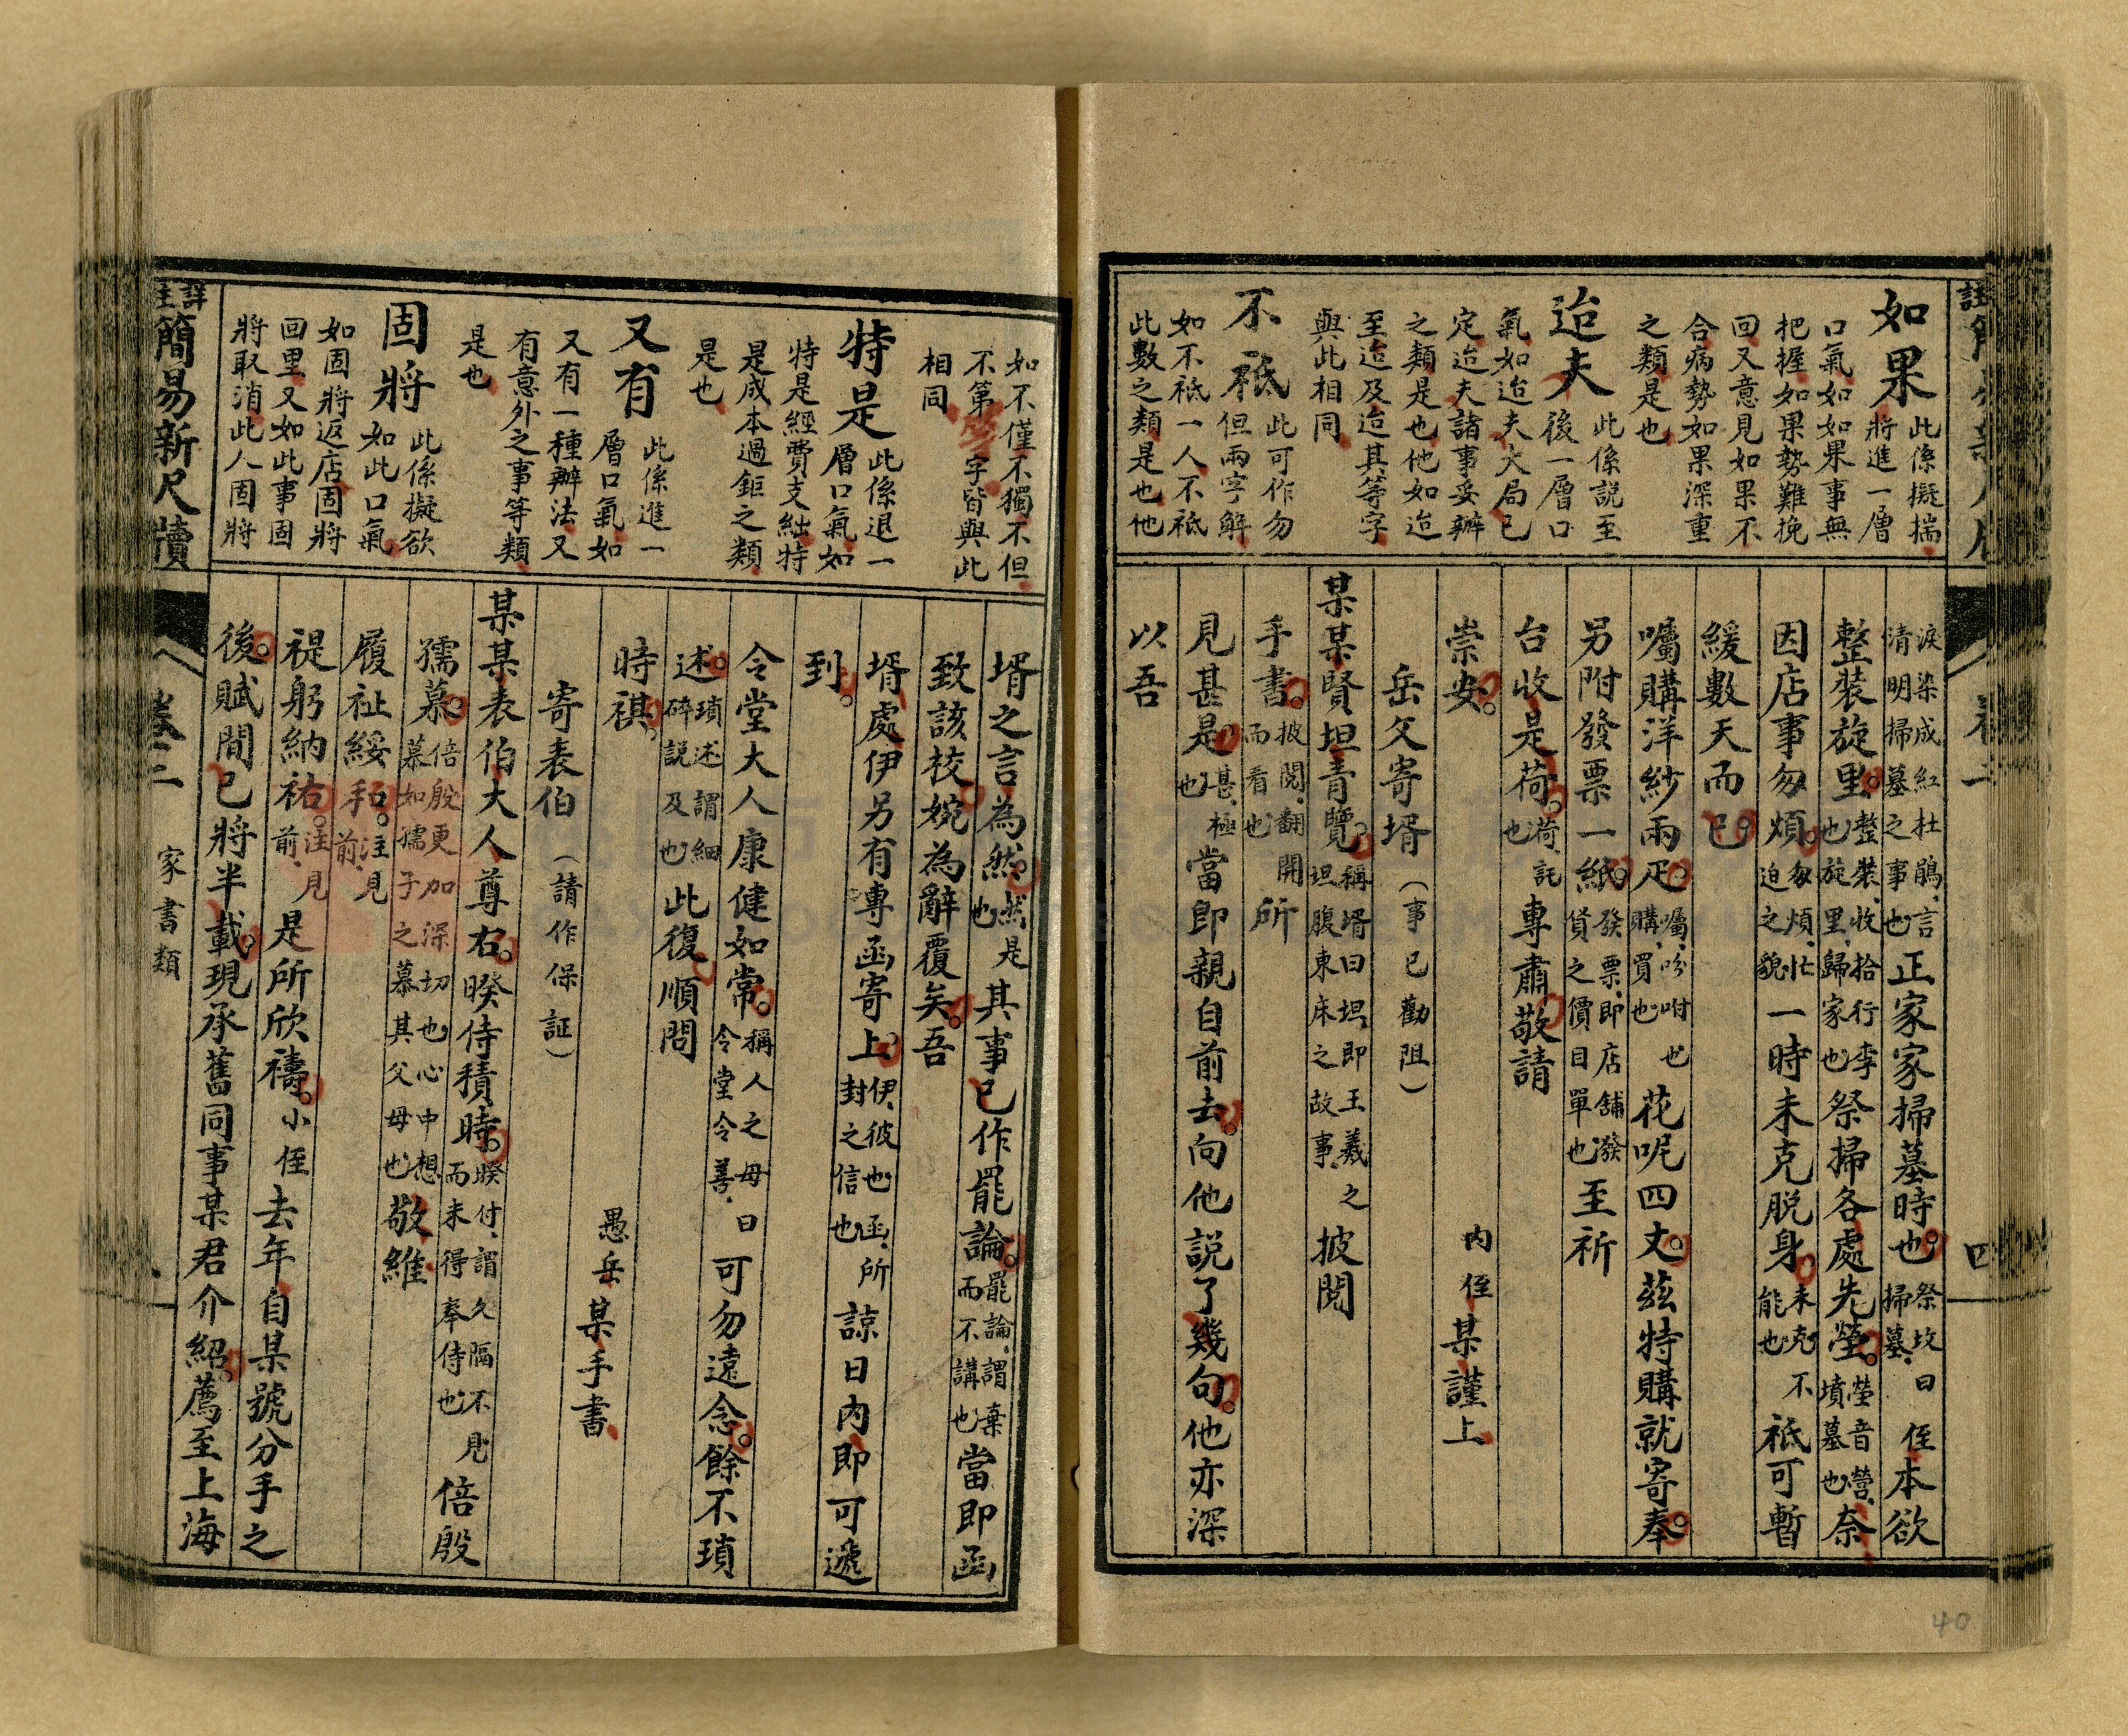 如果
此係擬揣
將進一層
口氣如如果事無
把握如果勢難挽
回又意見如果不
合病勢如果深重
之類是也
迨夫
此係說至
後一層口
氣如迨夫大局已
定迨夫諸事妥辦
之類是也他如迨
至迨及迨其等字
與此相同
不祗
此可作勿
但兩字解
如不祗一人不祗
此數之類是也他
淚染成紅杜鵑言
清明掃墓之事也
正家家掃墓時也
祭坟曰
掃墓
侄本欲
整裝旋里
整裝收拾行李
也旋里歸家也
祭掃各處先塋
塋音營
墳墓也
奈
因店事匆煩
匆煩忙
迫之貌
一時未克脫身
未克不
能也
祗可暫
緩數天而已
囑購洋紗兩疋
囑吩咐也
購買也
花呢四丈茲特購就寄奉
另附發票一紙
發票即店舖發
貨之價目單也
至祈
台收是荷
荷託
也
專肅敬請
崇安
內侄某謹上
岳父寄壻(事已勸阻)
某某賢坦青覽
稱壻曰坦即王羲之
坦腹東床之故事
披閱
手書
披閱翻開
而看也
所
見甚是
甚極
也
當即親自前去向他說了幾句他亦深
以吾
四
40
如不僅不獨不但
不第等字皆與此
相同
特是
此係退一
層口氣如
特是經費支絀特
是成本過鉅之類
是也
又有
此係進一
層口氣如
又有一種辦法又
有意外之事等類
是也
固將
此係擬欲
如此口氣
如固將返店固將
回里又如此事固
將取消此人固將
壻之言為然
然是
也
其事已作罷論
罷論謂棄
而不講也
當即函
致該校婉為辭覆矣吾
壻處伊另有專函寄上
伊彼也函所
封之信也
諒日內即可遞
到
令堂大人康健如常
稱人之母曰
令堂令善
可勿遠念餘不瑣
述
瑣述謂細
碎說及也
此復順問
時祺
愚岳某手書
寄表伯(請作保証)
某某表伯大人尊右暌侍積時
暌付謂久隔不見
而未得奉侍也
倍殷
孺慕
倍殷更加深切也心中想
慕如孺子之慕其父母也
敬維
履祉綏和
注見
前
禔躬納祐
注見
前
是所欣禱小侄去年自某號分手之
後賦閒已將半載現承舊同事某君介紹薦至上海
詳註簡易新尺牘
卷二
家書類